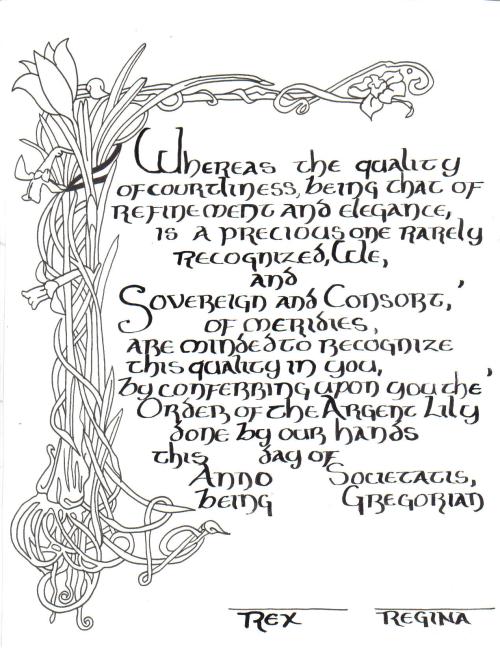 Whereas the quality
of courtliness, being that of
refinement and elegance,
is a precious one rarely
recognized, We,
and ,
Sovereign and Consort,
of Meridies,
are minded to recognize
this quality in you,
,
by conferring upon you the
Order of the Argent Lily
done by our hands
this day of
Anno Societatis,
being Gregorian
Rex Regina